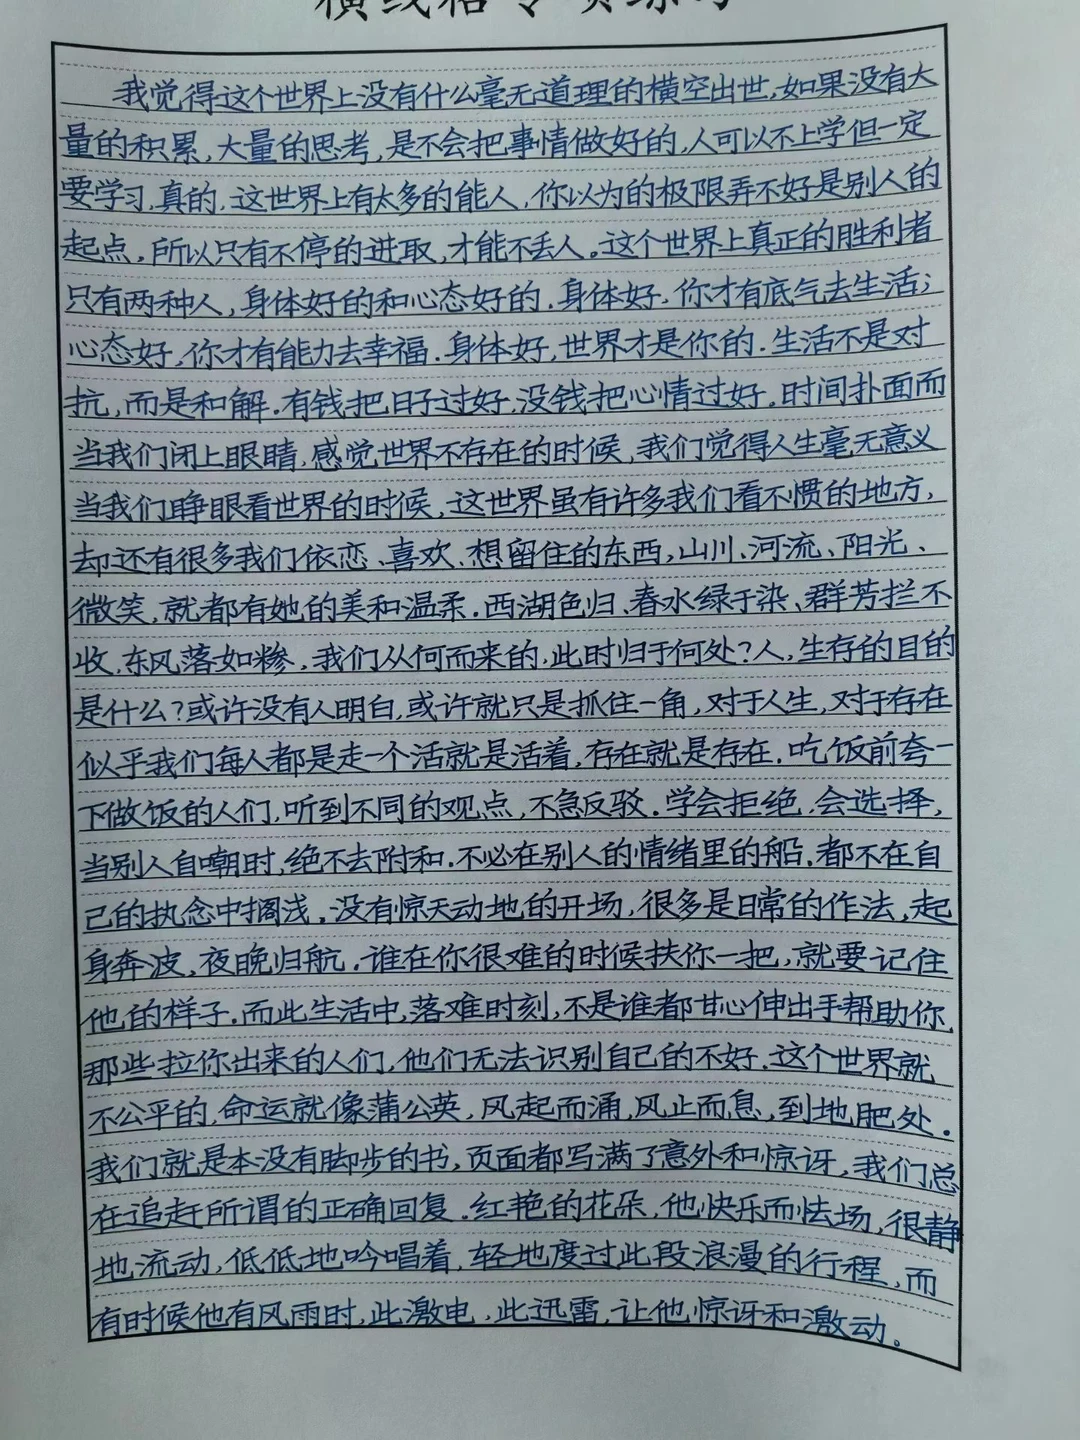 横线格专项练习
我觉得这个世界上没有什么毫无道理的横空出世,如果没有大
量的积累,大量的思考,是不会把事情做好的,人可以不上学但一定
要学习.真的.这世界上有太多的能人,你以为的极限弄不好是别人的
起点,所以只有不停的进取,才能不丢人。这个世界上真正的胜利者
只有两种人,身体好的和心态好的.身体好,你才有底气去生活;
心态好,你才有能力去幸福.身体好,世界才是你的.生活不是对
抗,而是和解.有钱把日子过好,没钱把心情过好.时间扑面而
当我们闭上眼睛,感觉世界不存在的时候,我们觉得人生毫无意义
当我们睁眼看世界的时候,这世界虽有许多我们看不惯的地方,
却还有很多我们依恋、喜欢、想留住的东西,山川、河流、阳光、
微笑,就都有她的美和温柔.西湖色归、春水绿于染、群芳拦不
收,东风落如糁,我们从何而来的,此时归于何处?人,生存的目的
是什么?或许没有人明白,或许就只是抓住一角,对于人生,对于存在
似乎我们每人都是走一个活就是活着,存在就是存在.吃饭前夸一
下做饭的人们,听到不同的观点,不急反驳.学会拒绝,会选择,
当别人自嘲时,绝不去附和.不必在别人的情绪里的船.都不在自
己的执念中搁浅.没有惊天动地的开场,很多是日常的作法,起
身奔波,夜晚归航.谁在你很难的时候扶你一把,就要记住
他的样子.而此生活中,落难时刻,不是谁都甘心伸出手帮助你,
那些拉你出来的人们,他们无法识别自己的不好.这个世界就
不公平的,命运就像蒲公英,风起而涌,风止而息,到地肥处.
我们就是本没有脚步的书,页面都写满了意外和惊讶,我们总
在追赶所谓的正确回复.红艳的花朵,他快乐而怯场,很静
地流动,低低地吟唱着,轻地度过此段浪漫的行程,而
有时候他有风雨时,此激电,此迅雷,让他惊讶和激动。